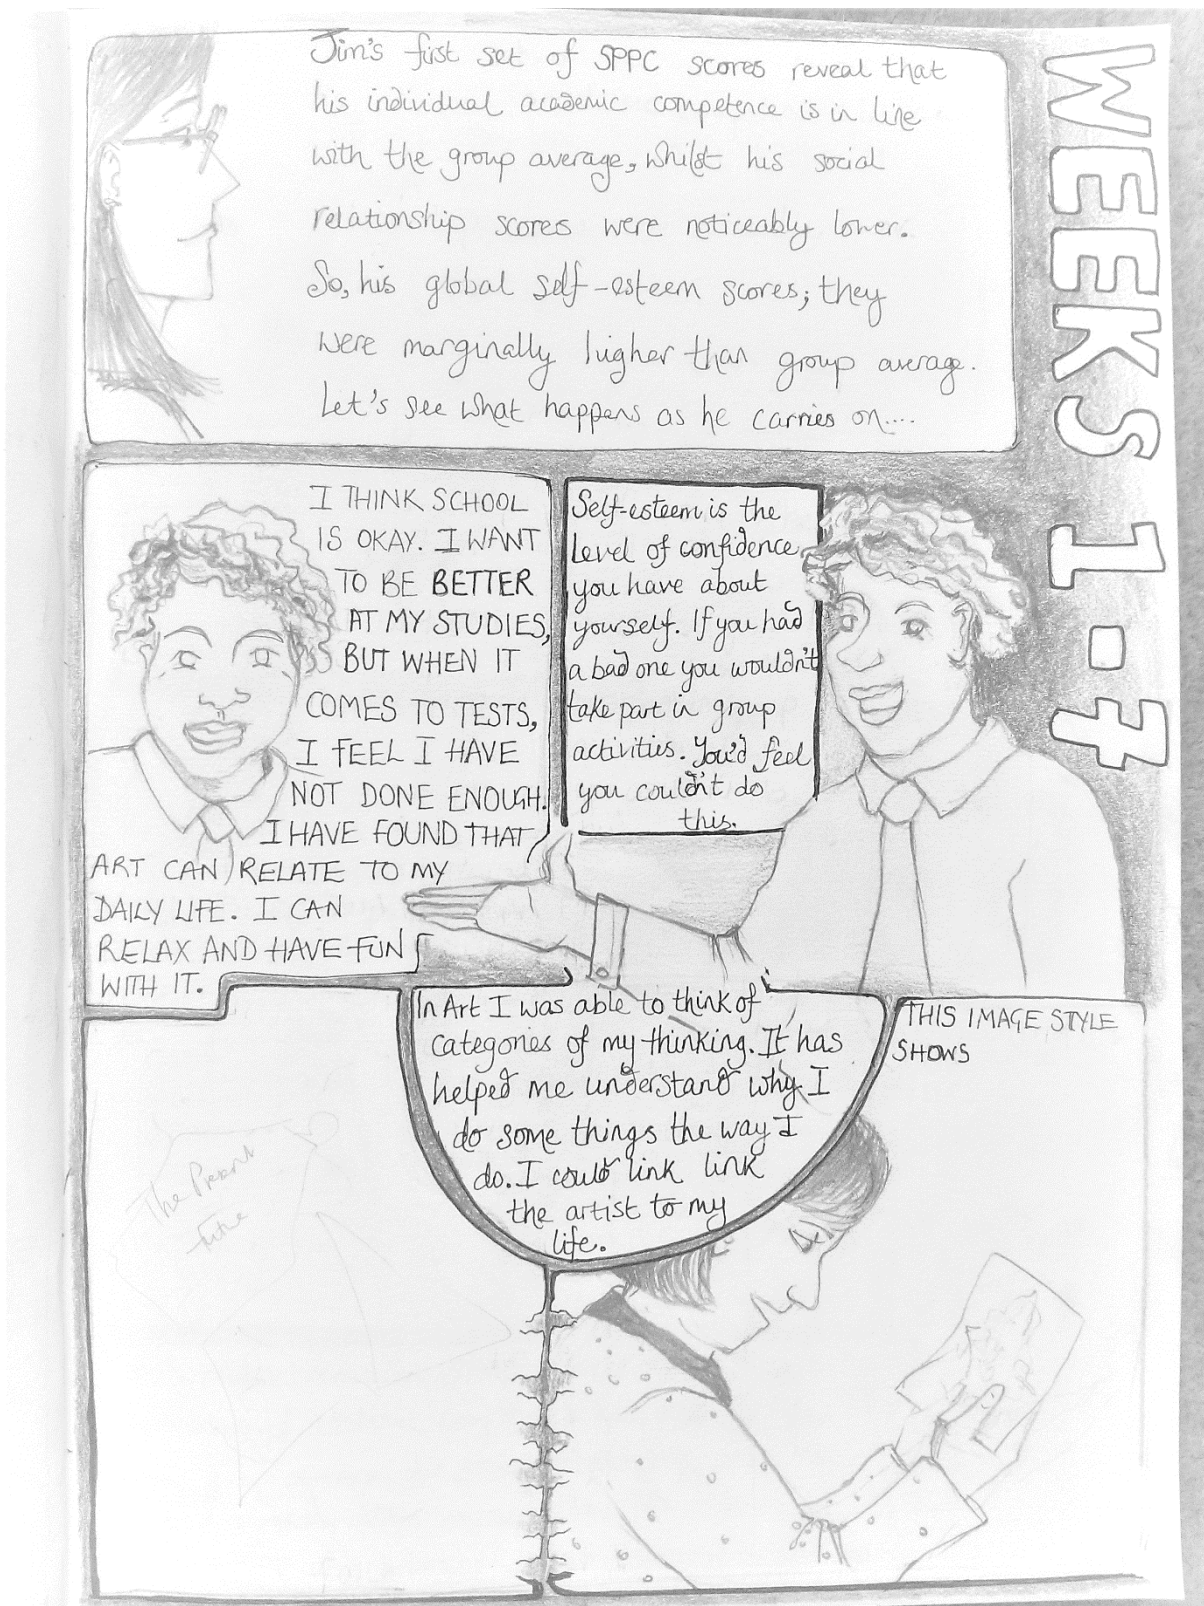 WEEKS 1-7
Jim's first set of SPPC scores reveal that
his individual academic competence is in line
with the group average, whilst his social
relationship scores were noticeably lower.
So, his global self-esteem scores; they
were marginally higher than group average.
Let's see what happens as he carries on....
I THINK SCHOOL
IS OKAY. I WANT
TO BE BETTER
AT MY STUDIES,
BUT WHEN IT
COMES TO TESTS,
I FEEL I HAVE
NOT DONE ENOUGH.
I HAVE FOUND THAT
ART CAN RELATE TO MY
DAILY LIFE. I CAN
RELAX AND HAVE FUN
WITH IT.
Self-esteem is the
level of confidence
you have about
yourself. If you had
a bad one you wouldn't
take part in group
activities. You'd feel
you couldn't do
this.
In Art I was able to think of
categories of my thinking. It has
helped me understand why I
do some things the way I
do. I could link link
the artist to my
life.
THIS IMAGE STYLE
SHOWS
The Present